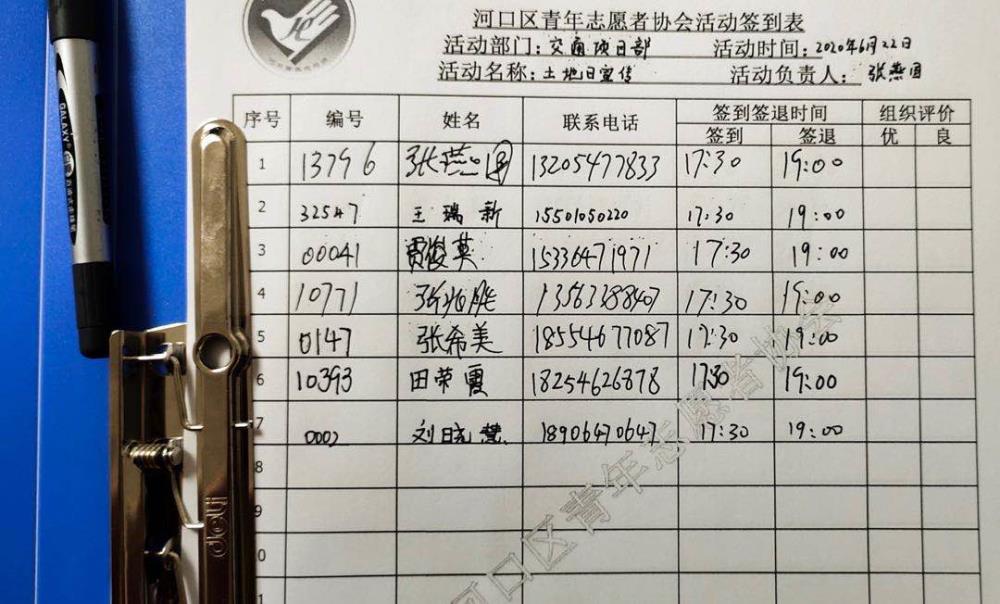 河口区青年志愿者协会活动签到表
活动部门：交通项目部 活动时间：2020年6月22日
活动名称：土地日宣传 活动负责人：张燕国
序号 编号 姓名 联系电话 签到签退时间 组织评价
签到 签退 优 良
1 13796 张燕国 13205477833 17:30 19:00
2 32547 王瑞新 15501050220 17:30 19:00
3 00041 贾俊英 15336471971 17:30 19:00
4 10771 张兆胜 13563388407 17:30 19:00
5 0147 张希美 18554677087 17:30 19:00
6 10393 田荣霞 18254626878 17:30 19:00
7 0002 刘晓慧 18906470647 17:30 19:00
8
9
0
1
河口区青年志愿者协会
deli
GALAXY